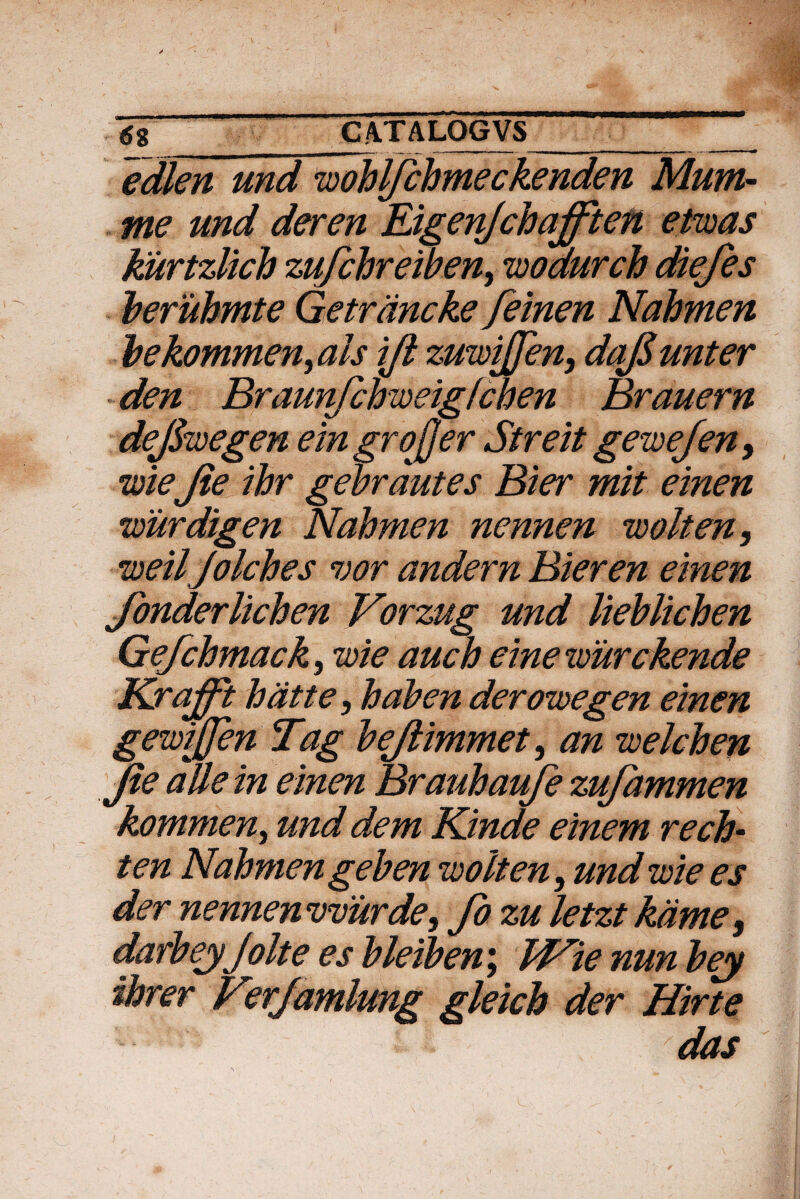 68 CATALOGVS
edlen und wohlſchmeckenden Mum-
me und deren Eigenſchafften etwas
kürtzlich zuſchreiben, wodurch dieſes
berühmte Geträncke ſeinen Nahmen
bekommen, als iſt zuwiſſen, daß unter
den Braunſchweigſchen Brauern
deßwegen ein groſſer Streit geweſen,
wie ſie ihr gebrautes Bier mit einen
würdigen Nahmen nennen wolten,
weil ſolches vor andern Bieren einen
ſonderlichen Vorzug und lieblichen
Geſchmack, wie auch eine würckende
Krafft hätte, haben derowegen einen
gewiſſen Tag beſtimmet, an welchen
ſie alle in einen Brauhauſe zuſammen
kommen, und dem Kinde einem rech-
ten Nahmen geben wolten, und wie es
der nennen vvürde, ſo zu letzt käme,
darbey ſolte es bleiben; Wie nun bey
ihrer Verſamlung gleich der Hirte
das